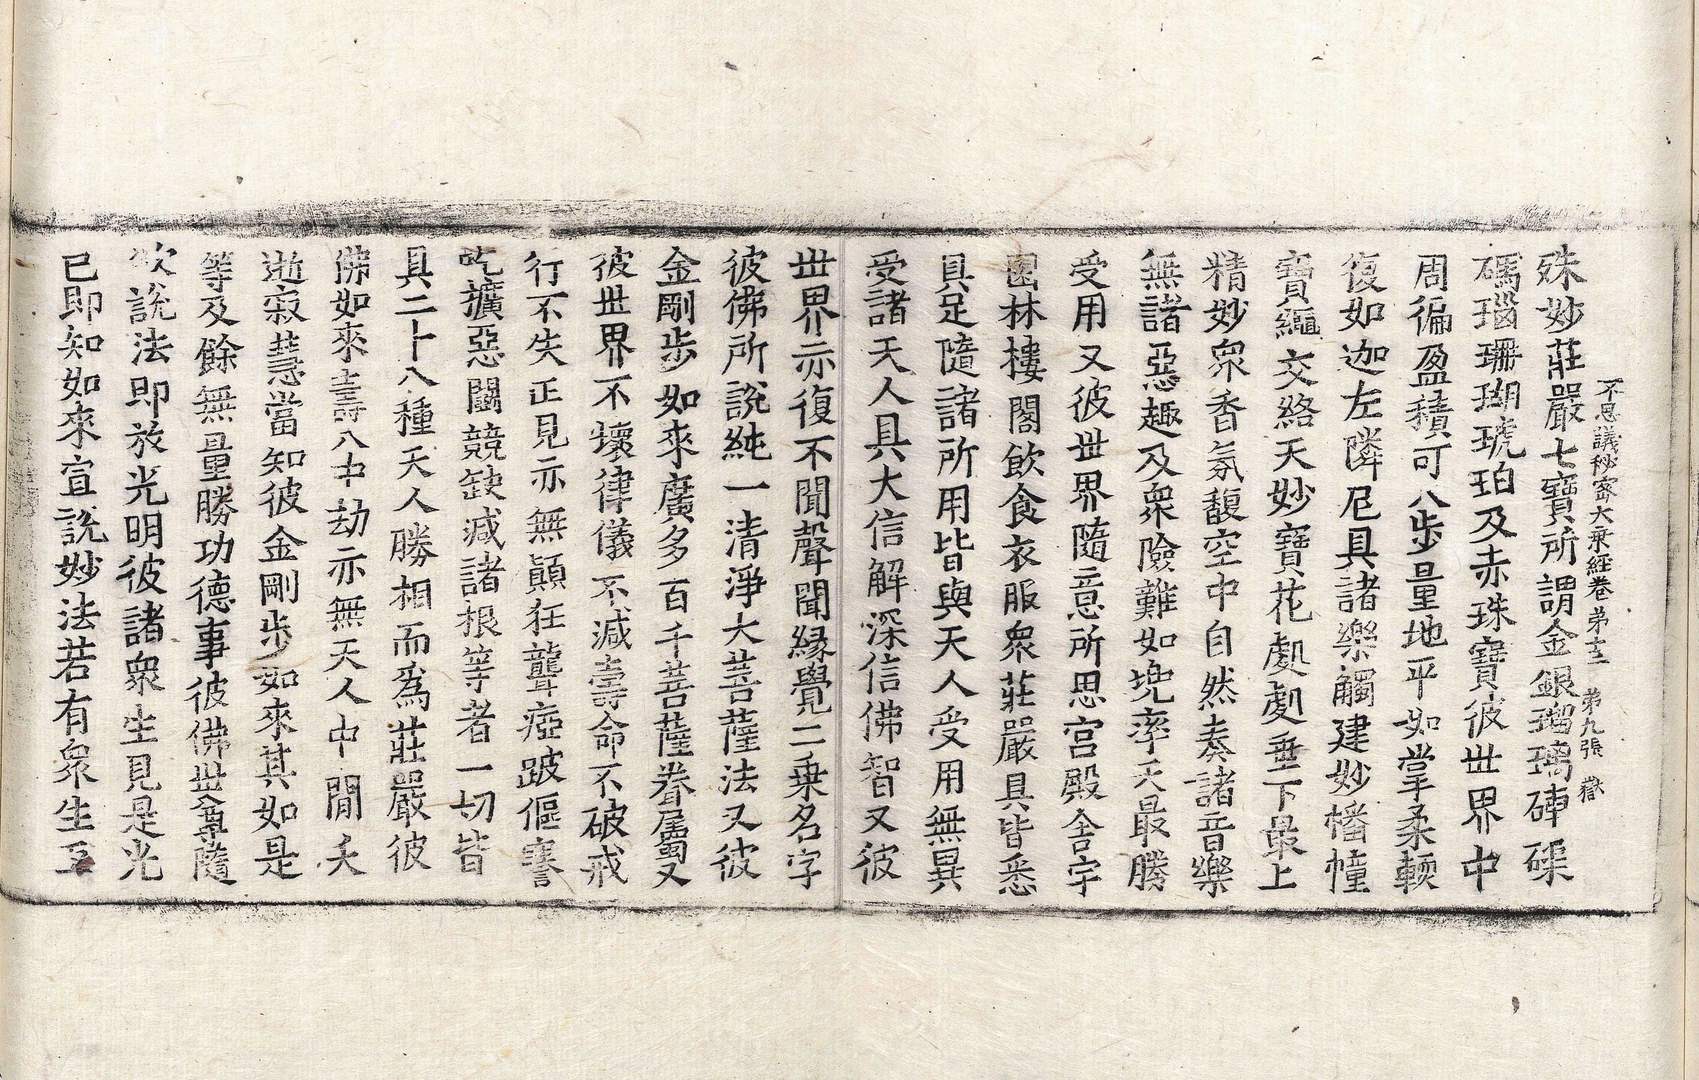 不思議秘密大乘經卷第十二 第九張 嶽
殊妙莊嚴七寶所謂金銀瑠璃硨磲
碼瑙珊瑚琥珀及赤珠寶彼世界中
周徧盈積可八步量地平如掌柔輭
復如迦左隣尼具諸樂觸建妙幡幢
寶繩交絡天妙寶花處處垂下最上
精妙衆香氛馥空中自然奏諸音樂
無諸惡趣及衆險難如兠率天最勝
受用又彼世界隨意所思宮殿舍宇
園林樓閣飲食衣服衆莊嚴具皆悉
具足隨諸所用皆與天人受用無異
受諸天人具大信解深信佛智又彼
世界亦復不聞聲聞緣覺二乗名字
彼佛所說純一清淨大菩薩法又彼
金剛步如來廣多百千菩薩眷屬又
彼世界不壞律儀不減壽命不破戒
行不失正見亦無顚狂聾瘂跛傴謇
吃擴惡鬪競缺減諸根等者一切皆
具二十八種天人勝相而爲莊嚴彼
佛如來壽八中劫亦無天人中間夭
逝寂慧當知彼金剛步如來其如是
等及餘無量勝功德事彼佛世尊隨
欲說法即放光明彼諸衆生見是光
已即知如來宣說妙法若有衆生互